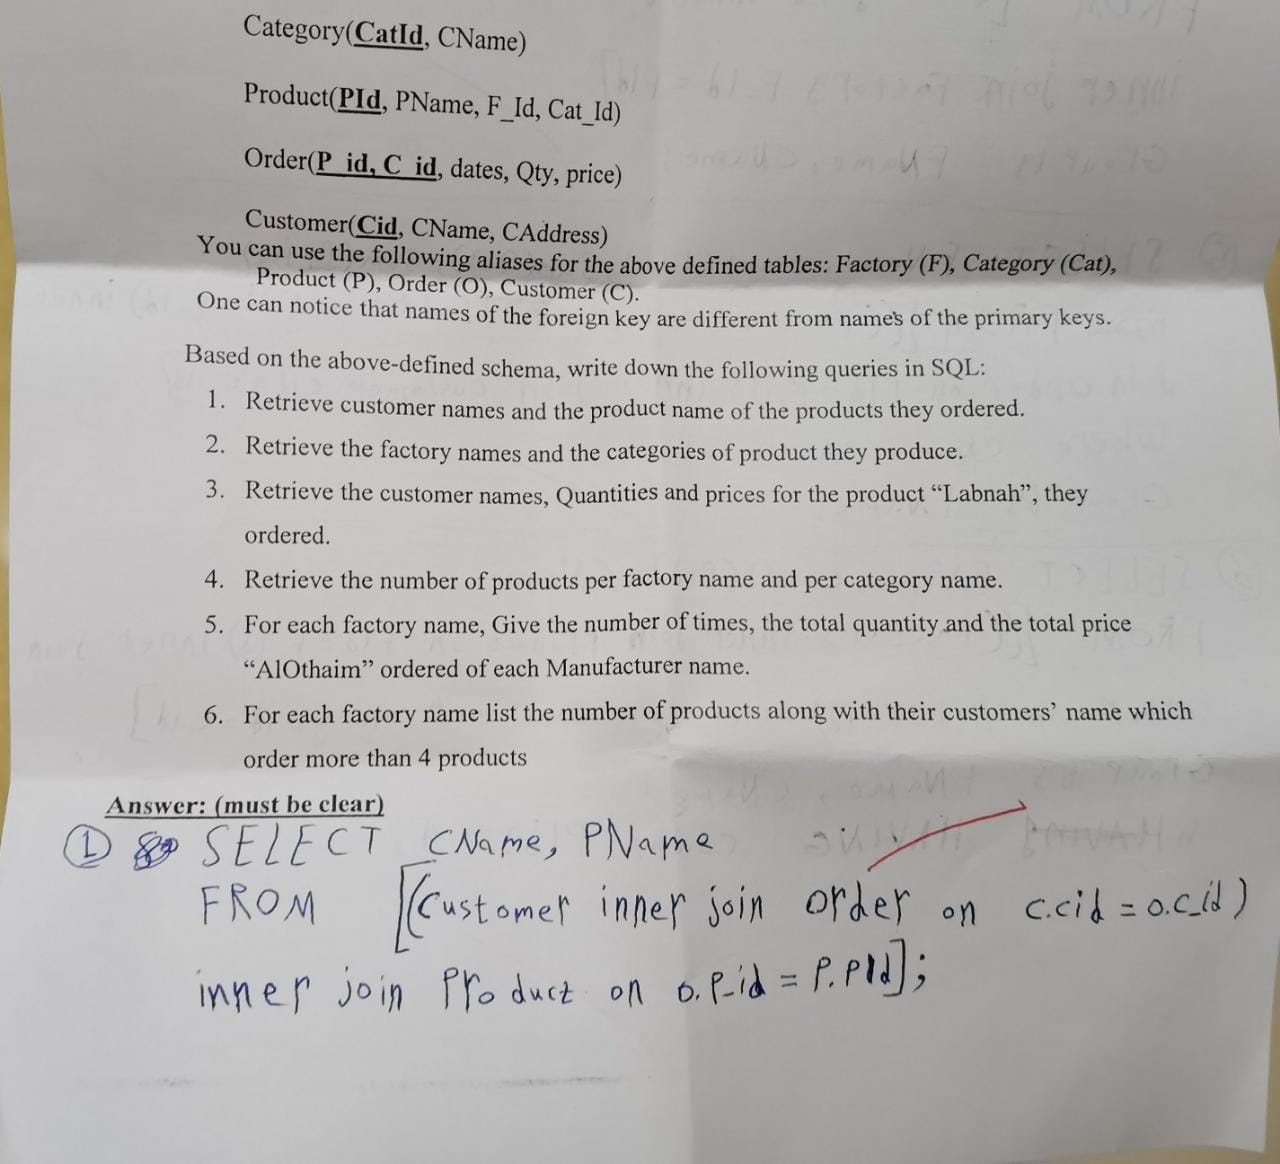 Category(CatId, CName)
Product(PId, PName, F_Id, Cat_Id)
Order(P_id, C_id, dates, Qty, price)
Customer(Cid, CName, CAddress)
You can use the following aliases for the above defined tables: Factory (F), Category (Cat),
Product (P), Order (O), Customer (C).
One can notice that names of the foreign key are different from name's of the primary keys.
Based on the above-defined schema, write down the following queries in SQL:
1. Retrieve customer names and the product name of the products they ordered.
2. Retrieve the factory names and the categories of product they produce.
3. Retrieve the customer names, Quantities and prices for the product “Labnah”, they
ordered.
4. Retrieve the number of products per factory name and per category name.
5. For each factory name, Give the number of times, the total quantity and the total price
“AlOthaim” ordered of each Manufacturer name.
6. For each factory name list the number of products along with their customers’ name which
order more than 4 products
Answer: (must be clear)
① SELECT CName, PName
FROM [(Customer inner join order on c.cid = o.c_id)
inner join Product on o.P_id = P.PId];